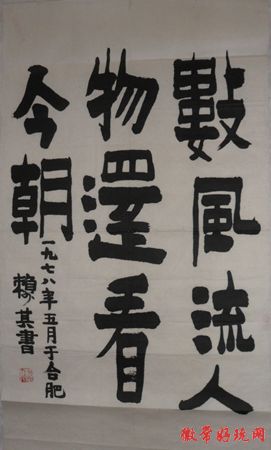 數風流人
物還看
今朝
一九七八年五月于合肥
賴少其書
徽常好玩网